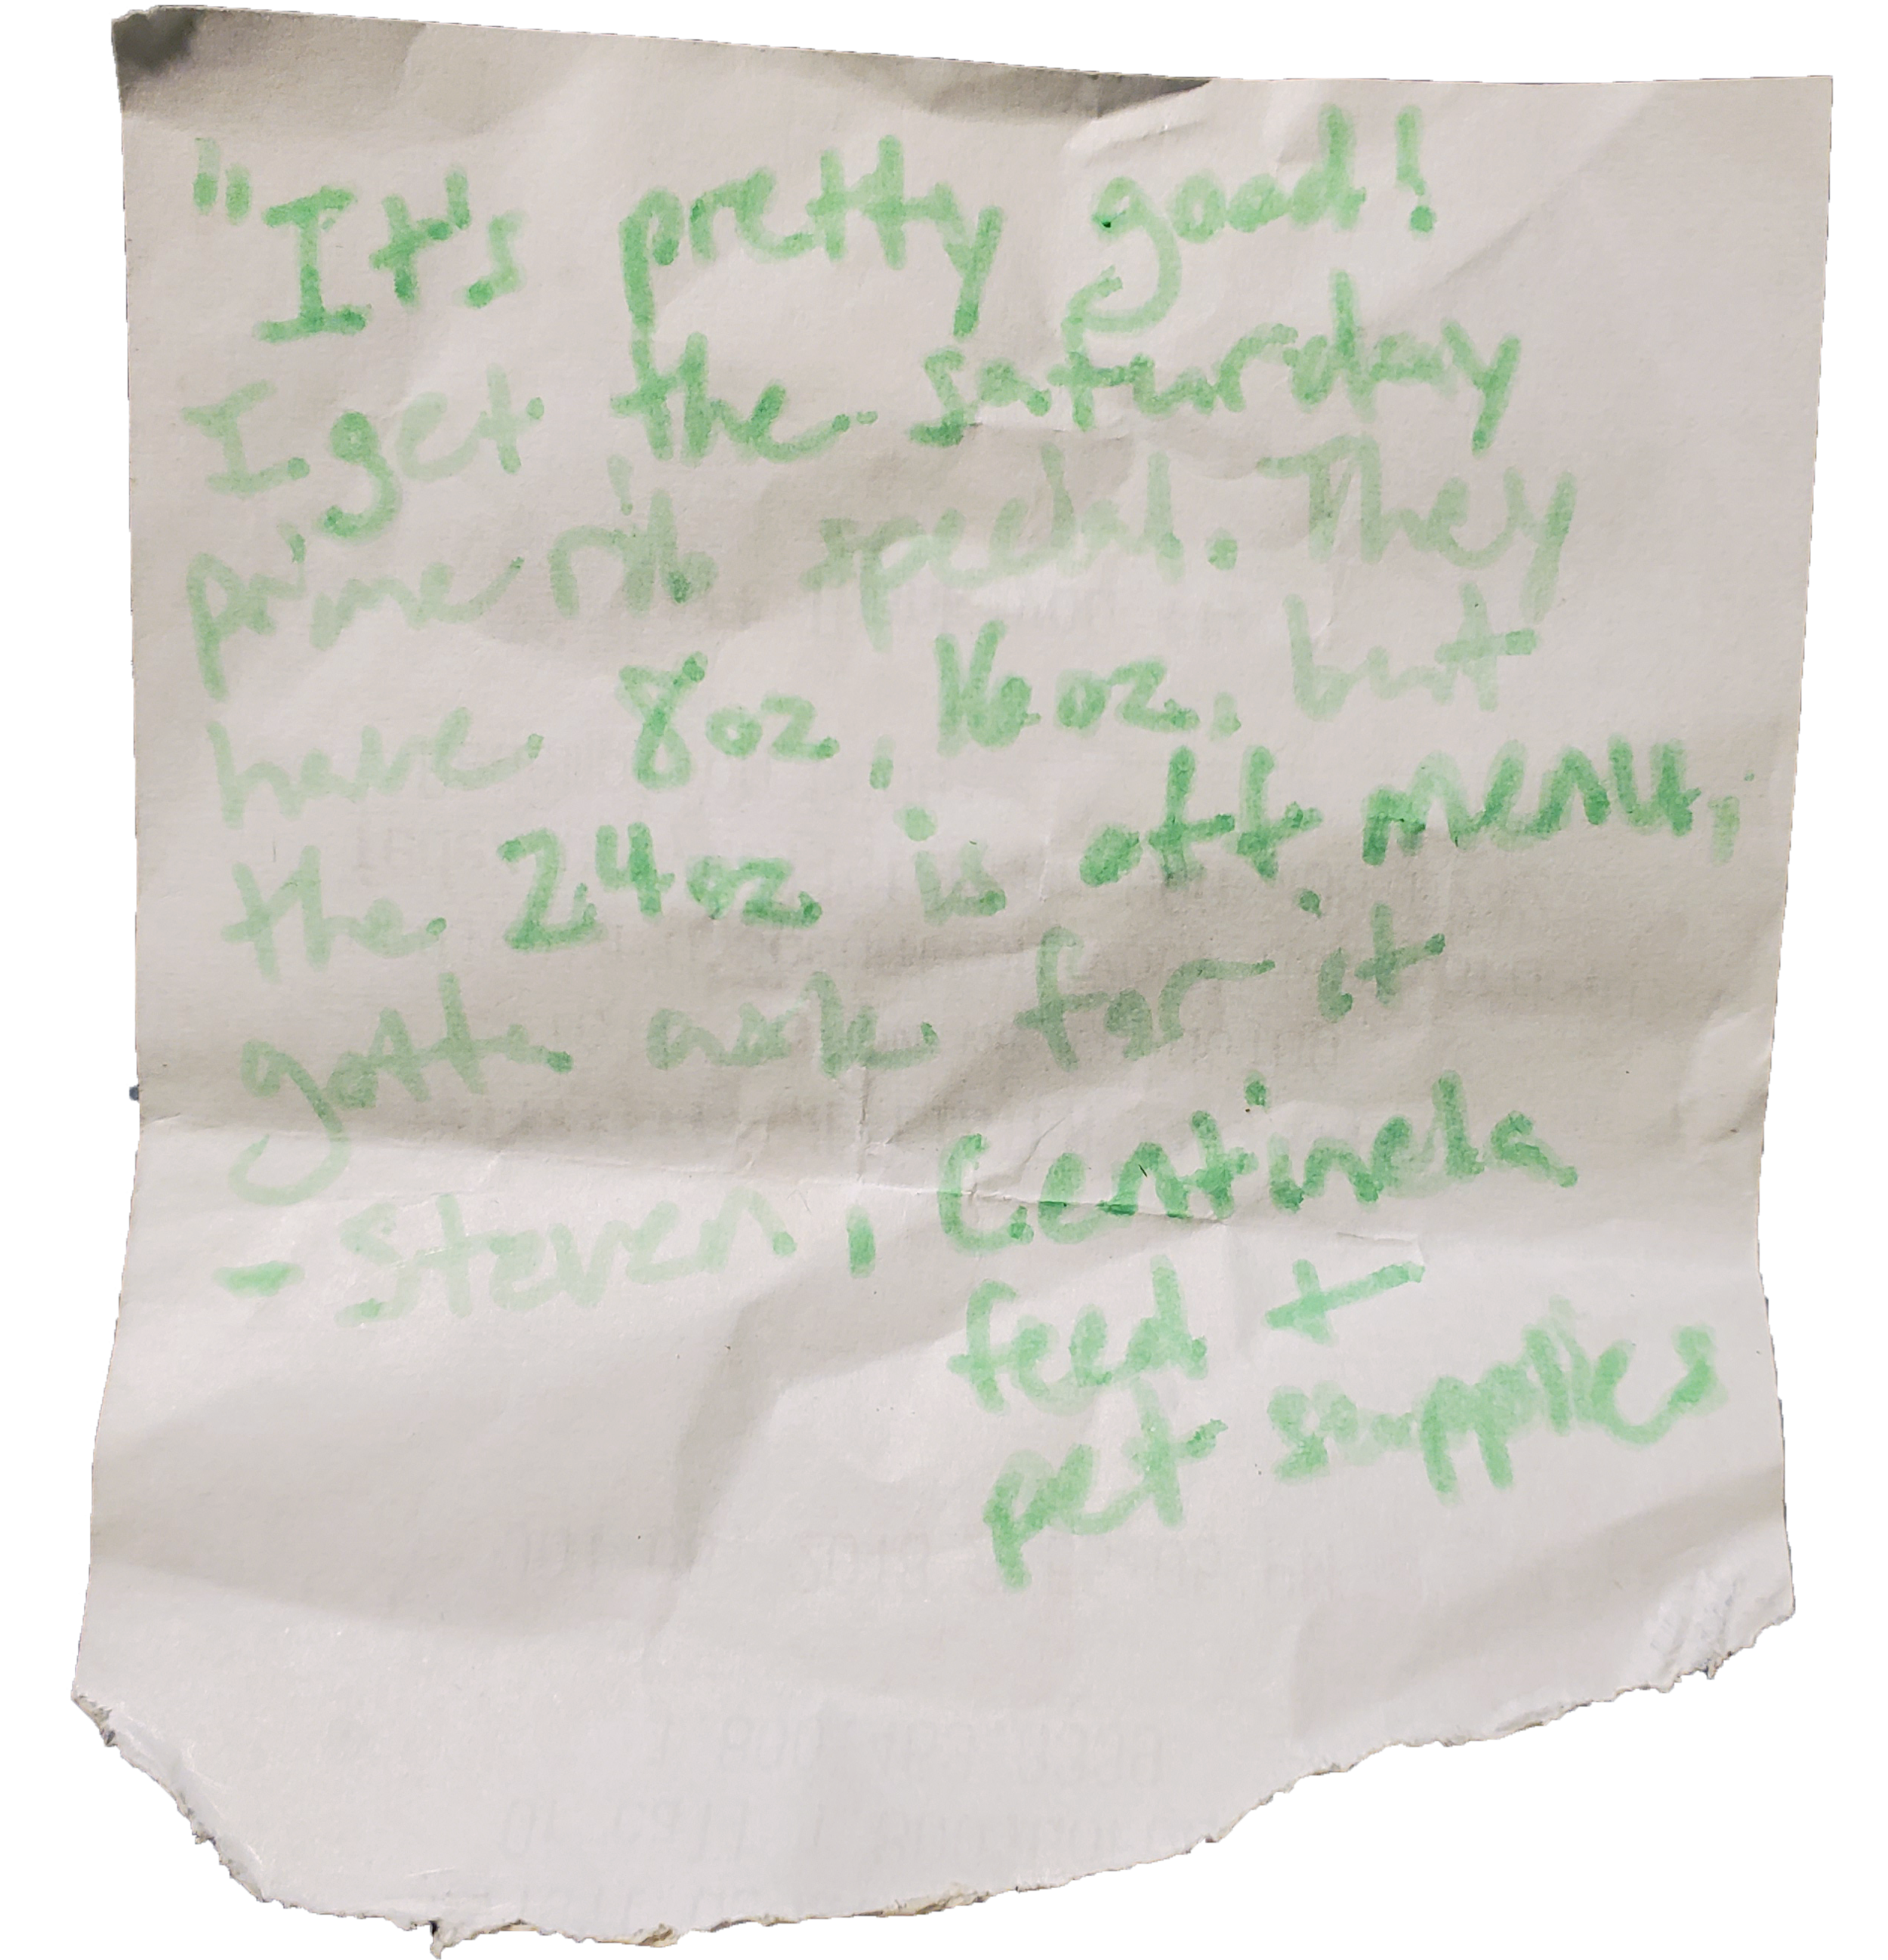 "It's pretty good!
I get the saturday
prime rib special. They
have 8oz, 16oz, but
the 24oz is off menu,
gotta ask for it
- Steven, Centinela
feed +
pet supplies